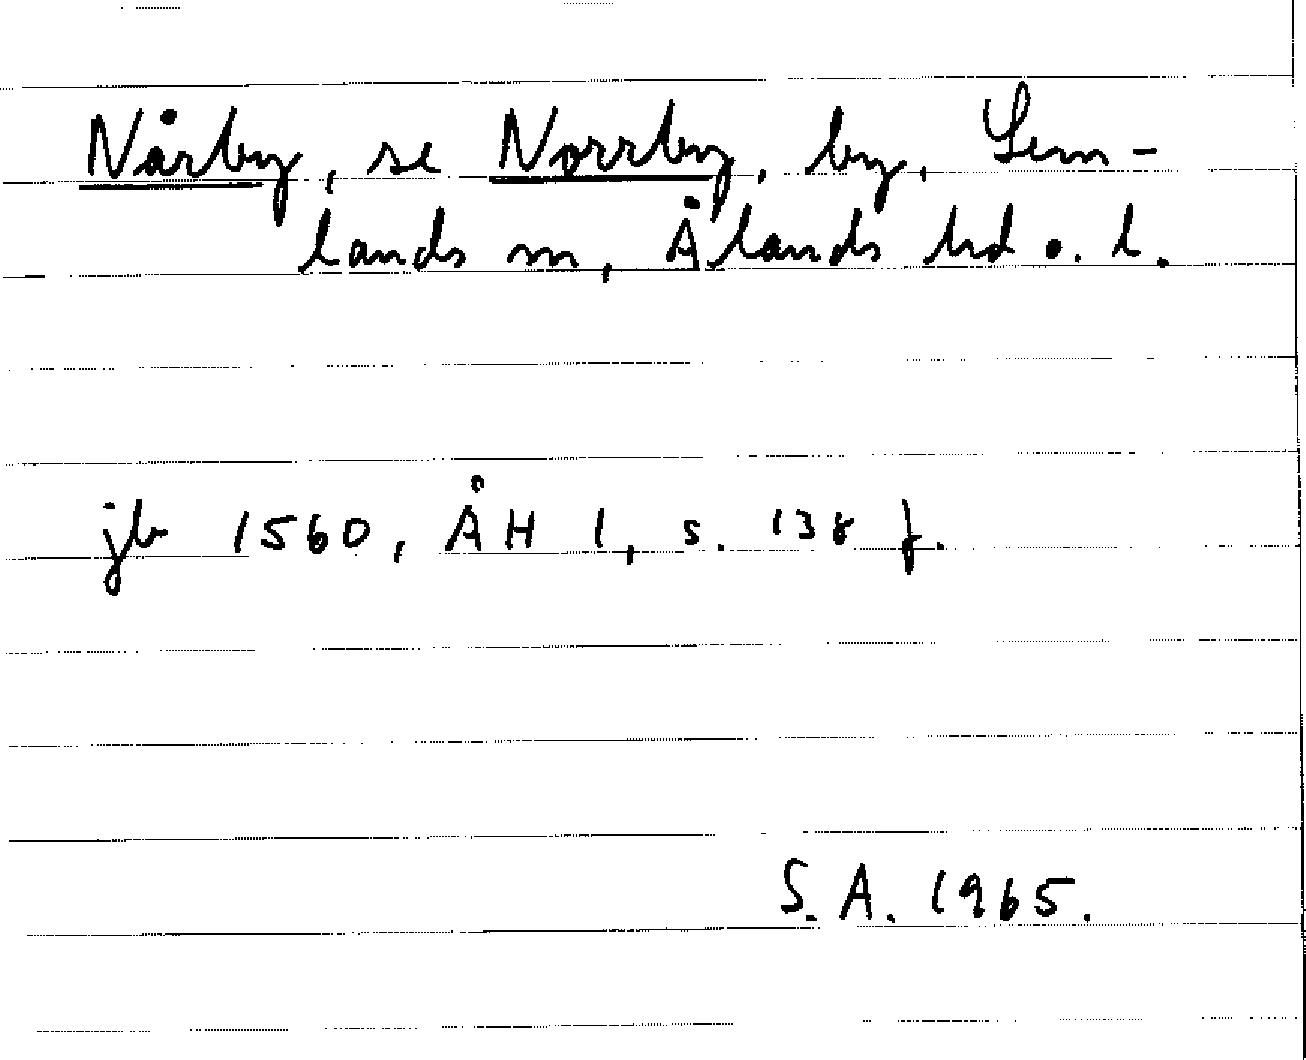 Nårby, se Norrby, by, Lem-
lands sn, Ålands hd o. l.
jb 1560, ÅH 1, s. 138 f.
S. A. 1965.